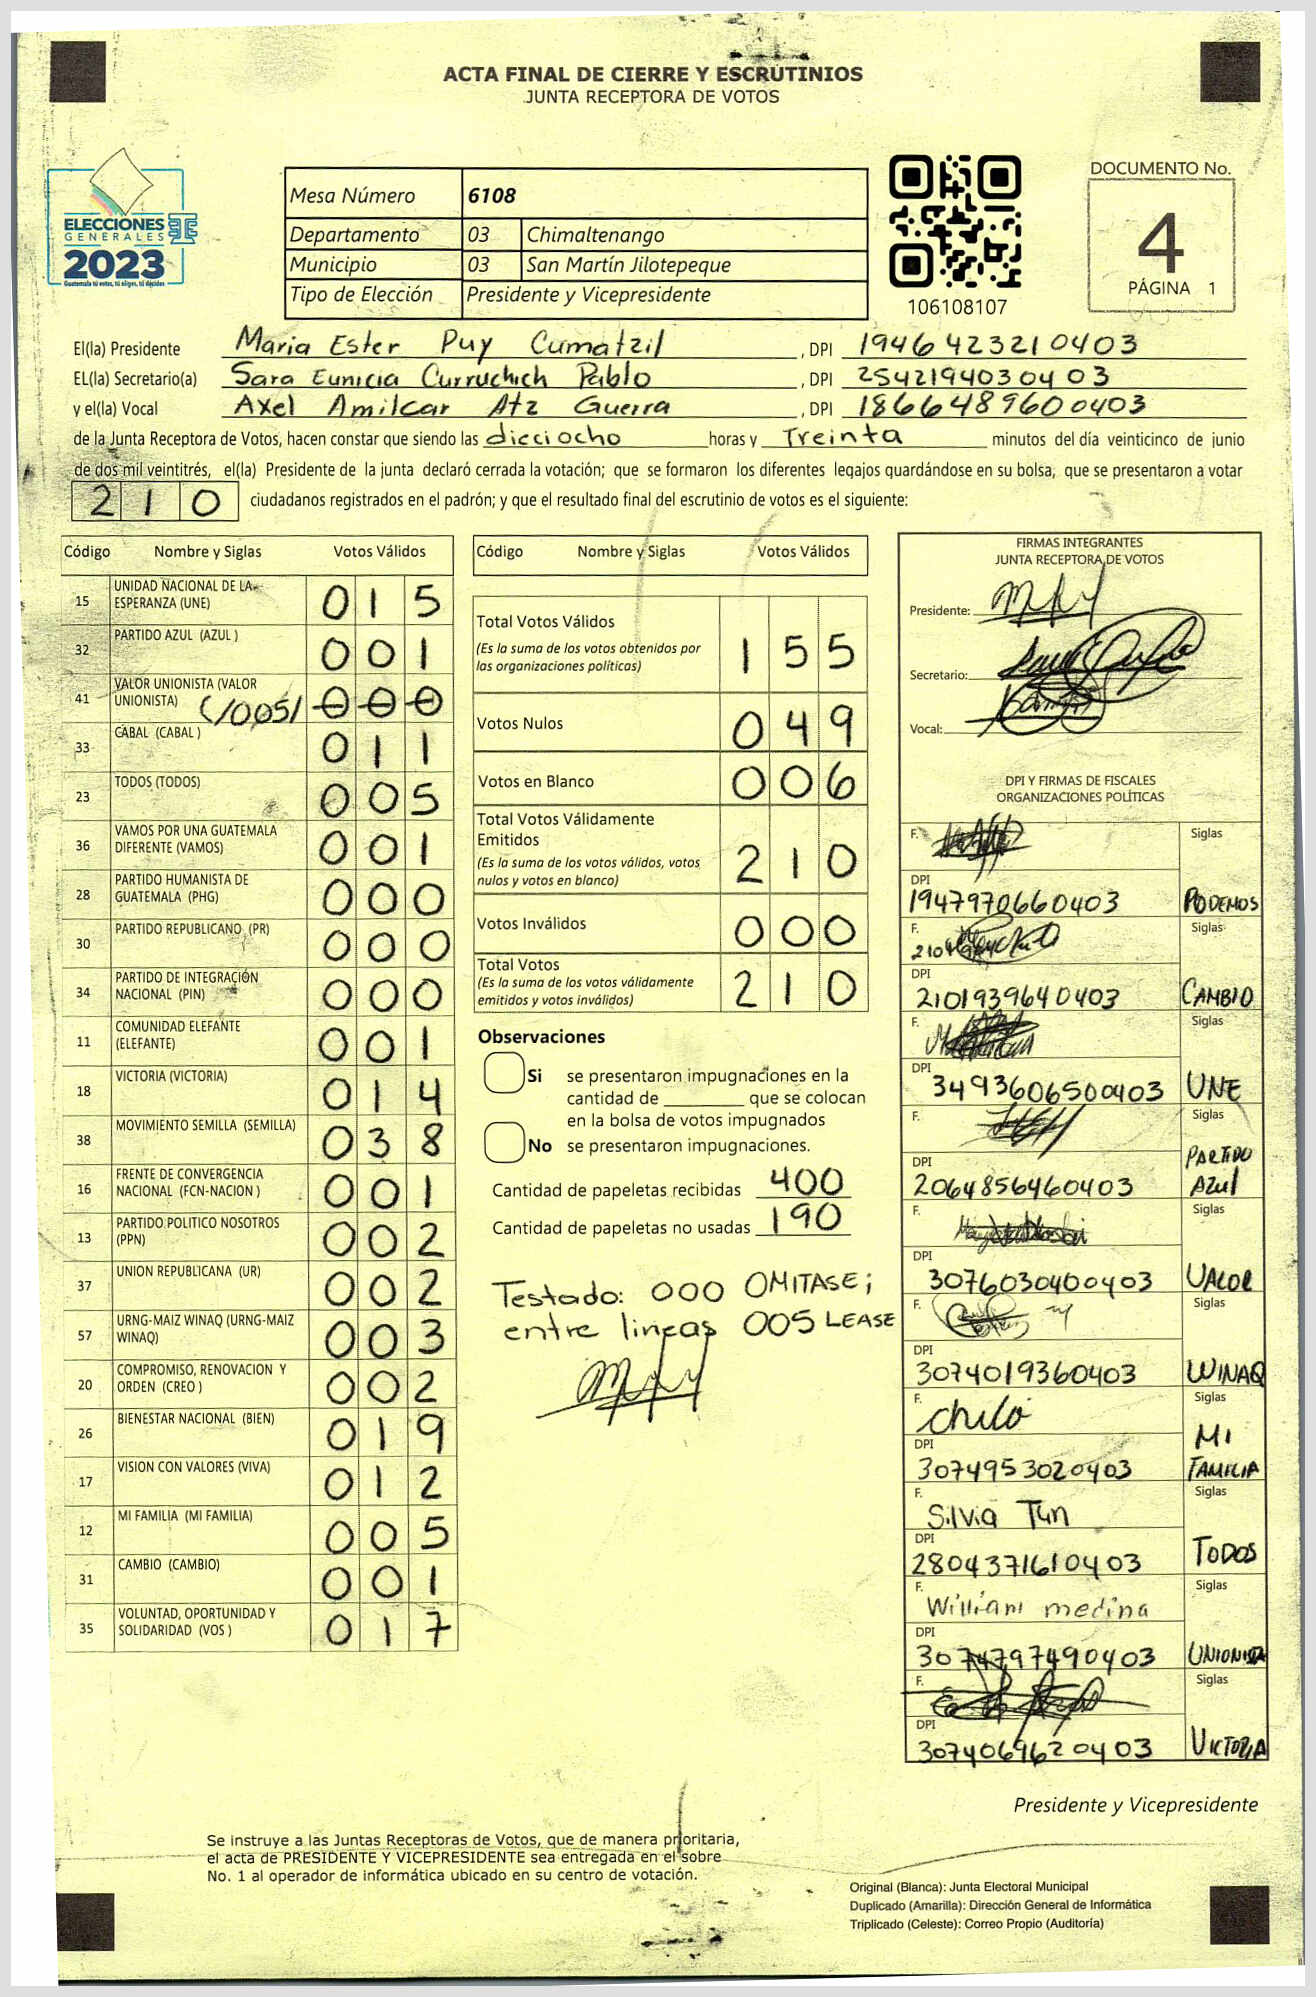 ACTA FINAL DE CIERRE Y ESCRUTINIOS
JUNTA RECEPTORA DE VOTOS
ELECCIONES
GENERALES
2023
Guatemala tú votas, tú eliges, tú decides
Mesa Número 6108
Departamento 03 Chimaltenango
Municipio 03 San Martín Jilotepeque
Tipo de Elección Presidente y Vicepresidente
106108107
DOCUMENTO No.
4
PÁGINA 1
El(la) Presidente Maria Ester Puy Cumatzil , DPI 1946423210403
EL(la) Secretario(a) Sara Eunicia Curruchich Pablo , DPI 2542194030403
y el(la) Vocal Axel Amilcar Atz Guerra , DPI 1866489600403
de la Junta Receptora de Votos, hacen constar que siendo las dieciocho horas y Treinta minutos del día veinticinco de junio
de dos mil veintitrés, el(la) Presidente de la junta declaró cerrada la votación; que se formaron los diferentes legajos quardándose en su bolsa, que se presentaron a votar
210 ciudadanos registrados en el padrón; y que el resultado final del escrutinio de votos es el siguiente:
Código Nombre y Siglas Votos Válidos
15 UNIDAD NACIONAL DE LA ESPERANZA (UNE) 015
32 PARTIDO AZUL (AZUL ) 001
41 VALOR UNIONISTA (VALOR UNIONISTA) (/005/ 000
33 CABAL (CABAL ) 011
23 TODOS (TODOS) 005
36 VAMOS POR UNA GUATEMALA DIFERENTE (VAMOS) 001
28 PARTIDO HUMANISTA DE GUATEMALA (PHG) 000
30 PARTIDO REPUBLICANO (PR) 000
34 PARTIDO DE INTEGRACIÓN NACIONAL (PIN) 000
11 COMUNIDAD ELEFANTE (ELEFANTE) 001
18 VICTORIA (VICTORIA) 014
38 MOVIMIENTO SEMILLA (SEMILLA) 038
16 FRENTE DE CONVERGENCIA NACIONAL (FCN-NACION ) 001
13 PARTIDO POLITICO NOSOTROS (PPN) 002
37 UNION REPUBLICANA (UR) 002
57 URNG-MAIZ WINAQ (URNG-MAIZ WINAQ) 003
20 COMPROMISO, RENOVACION Y ORDEN (CREO ) 002
26 BIENESTAR NACIONAL (BIEN) 019
17 VISION CON VALORES (VIVA) 012
12 MI FAMILIA (MI FAMILIA) 005
31 CAMBIO (CAMBIO) 001
35 VOLUNTAD, OPORTUNIDAD Y SOLIDARIDAD (VOS ) 017
Código Nombre y Siglas Votos Válidos
Total Votos Válidos 155
(Es la suma de los votos obtenidos por
las organizaciones políticas)
Votos Nulos 049
Votos en Blanco 006
Total Votos Válidamente
Emitidos 210
(Es la suma de los votos válidos, votos
nulos y votos en blanco)
Votos Inválidos 000
Total Votos 210
(Es la suma de los votos válidamente
emitidos y votos inválidos)
Observaciones
Si se presentaron impugnaciones en la
cantidad de ________ que se colocan
en la bolsa de votos impugnados
No se presentaron impugnaciones.
Cantidad de papeletas recibidas 400
Cantidad de papeletas no usadas 190
Testado: 000 OMITASE;
entre lineas 005 LEASE
FIRMAS INTEGRANTES
JUNTA RECEPTORA DE VOTOS
Presidente:
Secretario:
Vocal:
DPI Y FIRMAS DE FISCALES
ORGANIZACIONES POLÍTICAS
F. Siglas
DPI
1947970660403 PODEMOS
F. Siglas
DPI
2101939640403 CAMBIO
F. Siglas
DPI
3493606500403 UNE
F. Siglas
DPI PARTIDO
2064856460403 Azul
F. Siglas
DPI
3076030400403 VALOR
F. Siglas
DPI
3074019360403 WINAQ
F. chilo Siglas
DPI MI
3074953020403 FAMILIA
F. Silvia Tun Siglas
DPI
2804371610403 TODOS
F. William medina Siglas
DPI
3074797490403 UNIONISTA
F. Siglas
DPI
3074069620403 VICTORIA
Presidente y Vicepresidente
Se instruye a las Juntas Receptoras de Votos, que de manera prioritaria,
el acta de PRESIDENTE Y VICEPRESIDENTE sea entregada en el sobre
No. 1 al operador de informática ubicado en su centro de votación.
Original (Blanca): Junta Electoral Municipal
Duplicado (Amarilla): Dirección General de Informática
Triplicado (Celeste): Correo Propio (Auditoría)